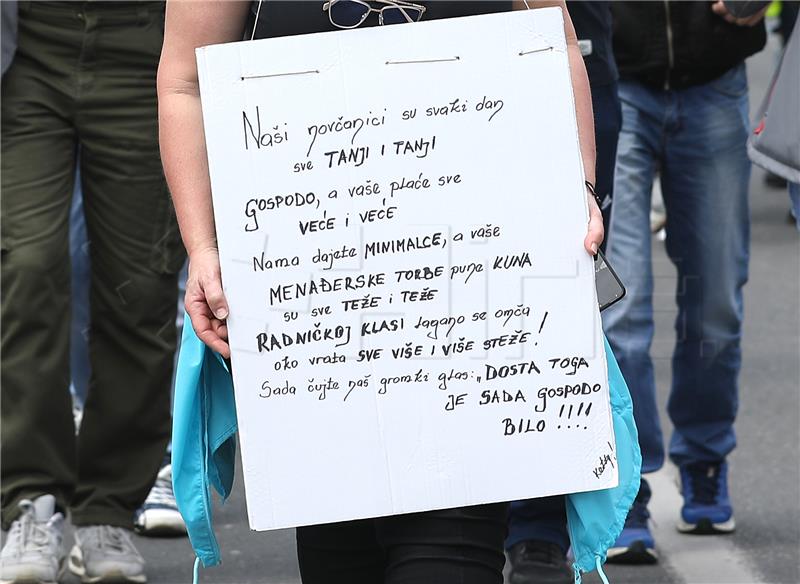 Naši novčanici su svaki dan
sve TANJI I TANJI
GOSPODO, a vaše plaće sve
VEĆE i VEĆE
Nama dajete MINIMALCE, a vaše
MENAĐERSKE TORBE pune KUNA
su sve TEŽE i TEŽE
RADNIČKOJ KLASI lagano se omča
oko vrata SVE VIŠE I VIŠE STEŽE!
Sada čujte naš gromki glas: „DOSTA TOGA
JE SADA GOSPODO
BILO !!!!